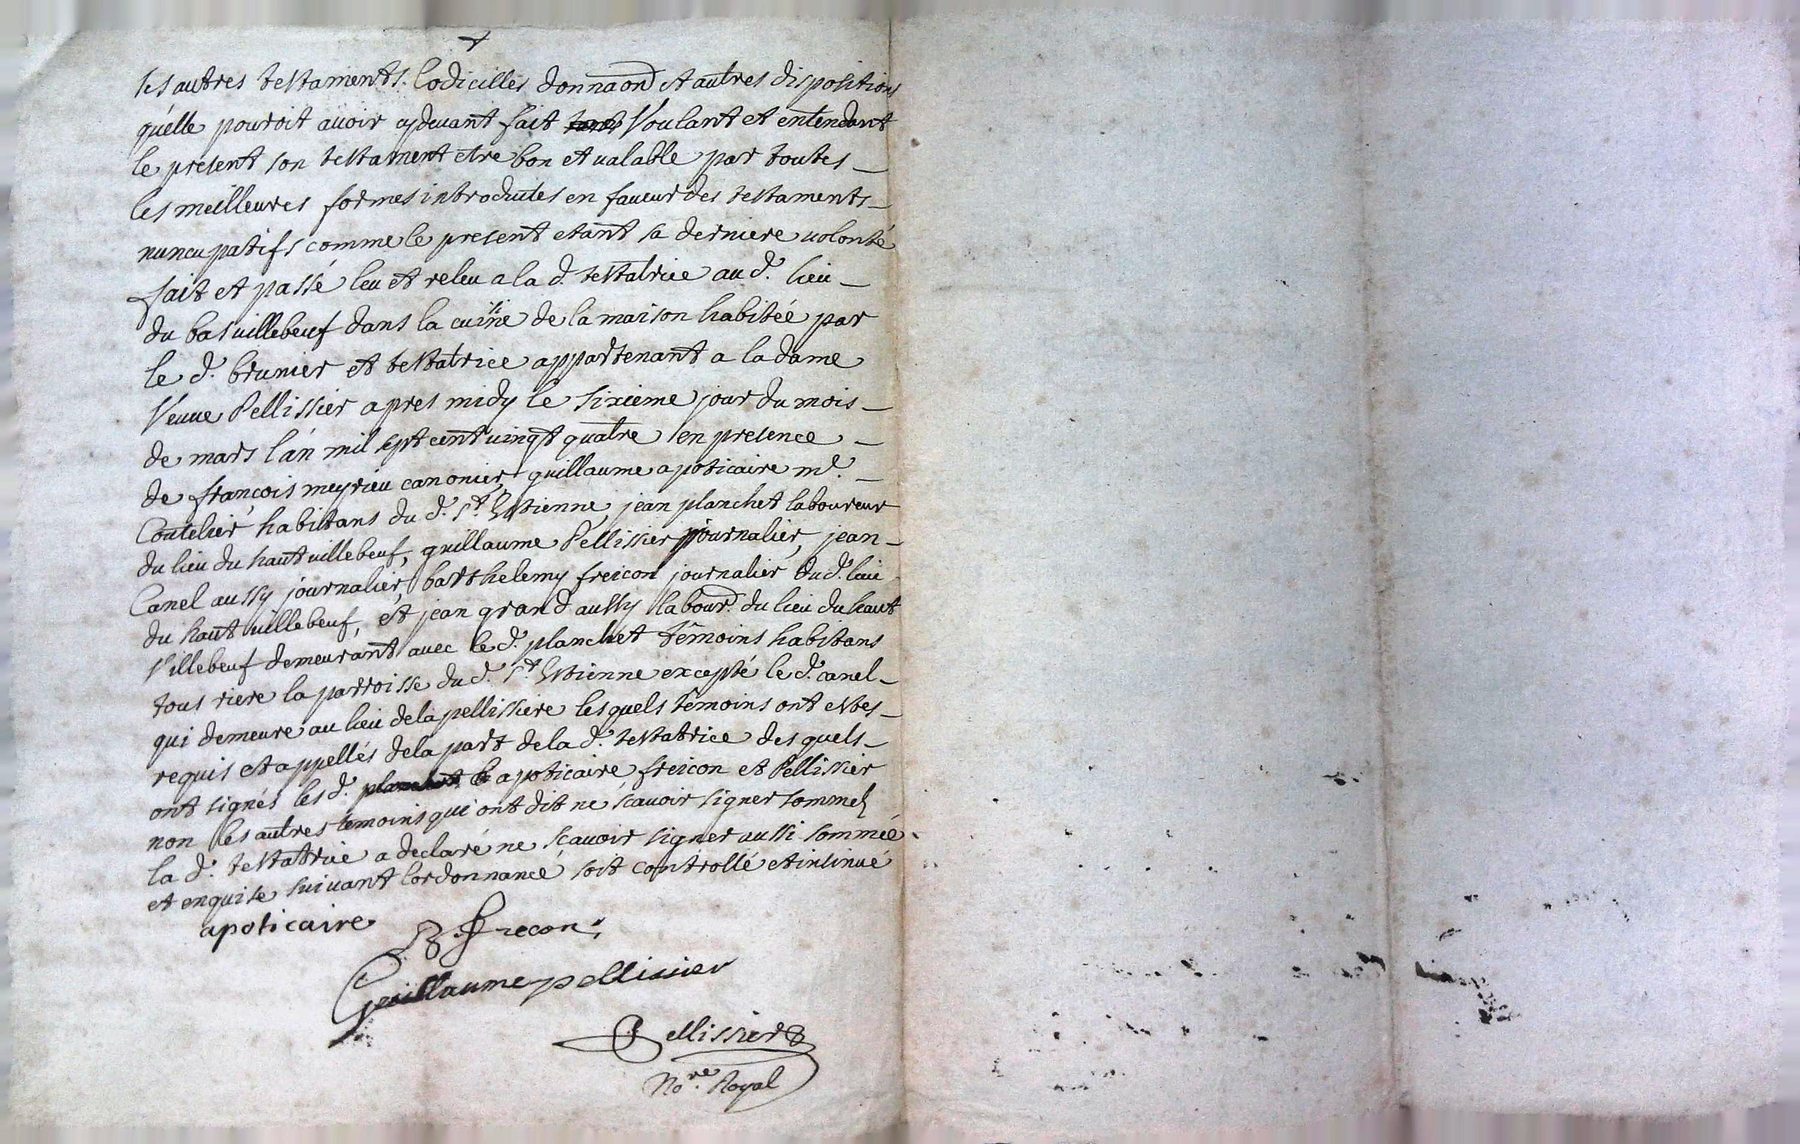 ses autres testaments. Codicilles donnaōn et autres dispositions
qu'elle pouroit auoir cydeuant fait Voulant et entendant
le present son testament etre bon et ualable par toutes
les meilleures formes introduites en faueur des testaments
nuncupatifs comme le present etant sa derniere uolonté
fait et passé leu et releu a la d. testatrice au d. lieu
du bas uillebeuf dans la cuisine de la maison habitée par
le d. brunier et testatrice appartenant a la dame
Veuue Pellissier apres midy le sixieme jour du mois
de mars l'an mil sept cent uingt quatre en presence
de françois meyrieu canonier, guillaume apoticaire me.
Coutelier habitans du d. St. Estienne, jean planchet laboureur
du lieu du haut uillebeuf, guillaume Pellissier journalier, jean
Canel aussy journalier, barthelemy freicon journalier du d. lieu
du haut uillebeuf, et jean grand aussy labour. du lieu du haut
Villebeuf demeurant auec le d. planchet témoins habitans
tous riere la parroisse du d. St. Estienne excepté le d. canel
qui demeure au lieu de la pellissiere lesquels témoins ont estes
requis et appellés de la part de la d. testatrice des quels
ont signés les d. planchet apoticaire freicon et Pellissier
non les autres temoins qui ont dit ne sçauoir signer sommés
la d. testatrice a declaré ne sçauoir signer aussi sommée
et enquise suiuant l'ordonnance soit controllé et insinué
apoticaire B frecon
Guillaume pellissier
Pellissier
No.re Royal